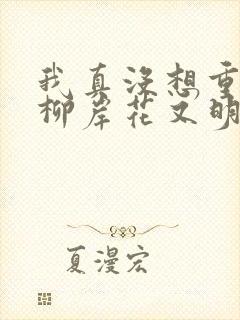 我真没想重
柳岸花又明
夏漫宏